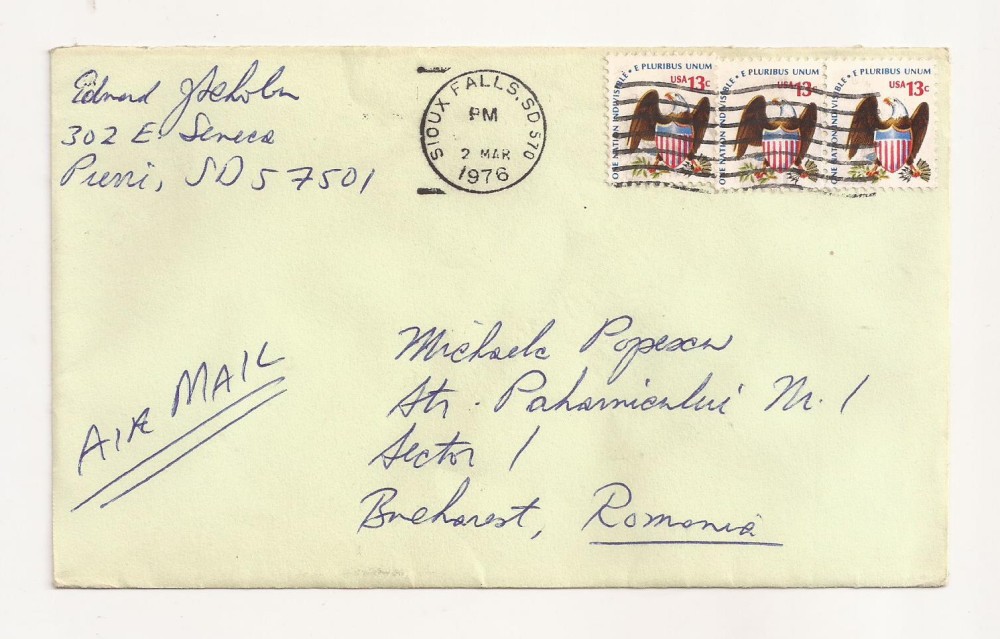 Edward
302 E. Seneca
Pierri, SD 57501
SIOUX FALLS, SD 570
PM
2 MAR
1976
ONE NATION INDIVISIBLE • E PLURIBUS UNUM
USA 13c
ONE NATION INDIVISIBLE • E PLURIBUS UNUM
USA 13
ONE NATION INDIVISIBLE • E PLURIBUS UNUM
USA 13c
AIR MAIL
Michaela Popescu
Str. Paharnicului Nr. 1
Sector 1
Bucharest, Romania